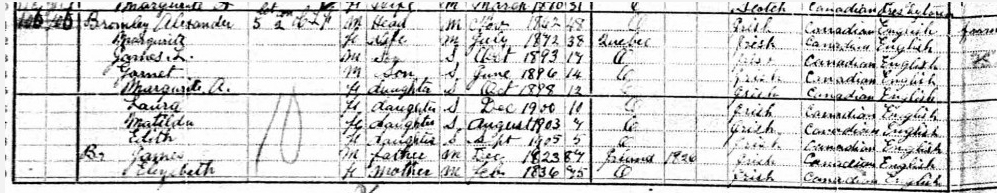 Marguerite A F Wife M March 1870 31 Scotch Canadian Presbyterian
Bromley Alexander 5 2 M Head M Nov 1862 48 O Irish Canadian English farmer
Margurite F Wife M July 1872 38 Quebec Irish Canadian English
James L. M Son S Oct 1893 17 O Irish Canadian English
Garnet M Son S June 1896 14 O Irish Canadian English
Margurite A. F daughter S Oct 1898 12 O Irish Canadian English
Laura F daughter S Dec 1900 10 O Irish Canadian English
Matilda F daughter S August 1903 7 O Irish Canadian English
Edith F daughter S Sept 1905 5 O Irish Canadian English
Br James M Father M Dec 1823 87 Ireland 1826 Irish Canadian English
Elizabeth F Mother M Feb 1836 75 O Irish Canadian English